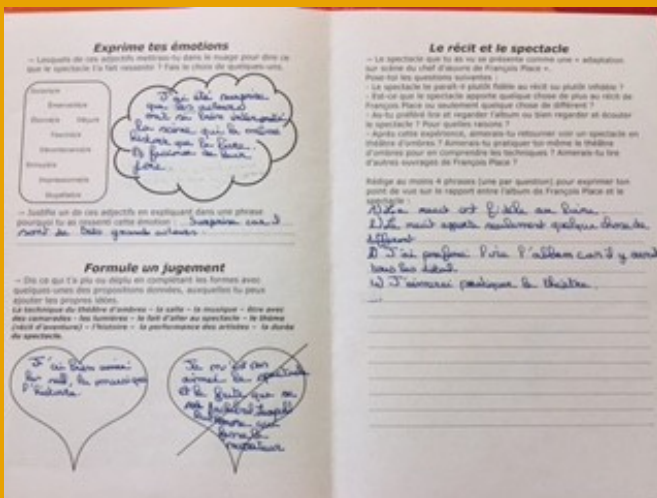 Exprime tes émotions
— Lesquels de ces adjectifs mettrais-tu dans le nuage pour dire ce
que le spectacle t'a fait ressentir ? Fais le choix de quelques-uns.
Surprise
Émerveillée
Étonnée Déçue
Fascinée
Décontenancée
Ennuyée
Impressionnée
Stupéfaite
J'ai été surprise
que les acteurs
ont si bien interprété
la scène qui la même
histoire que le livre.
— Justifie un de ces adjectifs en expliquant dans une phrase
pourquoi tu as ressenti cette émotion : Surprise car il
sont de très grands acteurs.
Formule un jugement
— Dis ce qui t'a plu ou déplu en complétant les formes avec
quelques-unes des propositions données, auxquelles tu peux
ajouter tes propres idées.
La technique du théâtre d'ombres – la salle – la musique – être avec
des camarades – les lumières – le fait d'aller au spectacle – le thème
(récit d'aventure) – l'histoire – la performance des artistes – la durée
du spectacle.
J'ai bien aimé
la musique
l'histoire
aimé le spectacle
et le
Le récit et le spectacle
— Le spectacle que tu as vu se présente comme une « adaptation
sur scène du chef d'œuvre de François Place ».
Pose-toi les questions suivantes :
- Le spectacle te paraît-il plutôt fidèle au récit ou plutôt infidèle ?
- Est-ce que le spectacle apporte quelque chose de plus au récit de
François Place ou seulement quelque chose de différent ?
- As-tu préféré lire et regarder l'album ou bien regarder et écouter
le spectacle ? Pour quelles raisons ?
- Après cette expérience, aimerais-tu retourner voir un spectacle en
théâtre d'ombres ? Aimerais-tu pratiquer toi-même le théâtre
d'ombres pour en comprendre les techniques ? Aimerais-tu lire
d'autres ouvrages de François Place ?
Rédige au moins 4 phrases (une par question) pour exprimer ton
point de vue sur le rapport entre l'album de François Place et le
spectacle :
1) Le récit est fidèle au livre.
2) Le récit apporte seulement quelque chose de
différent
3) J'ai préféré lire l'album car il y avait
tous les détails.
4) J'aimerai pratiquer le théâtre.
...